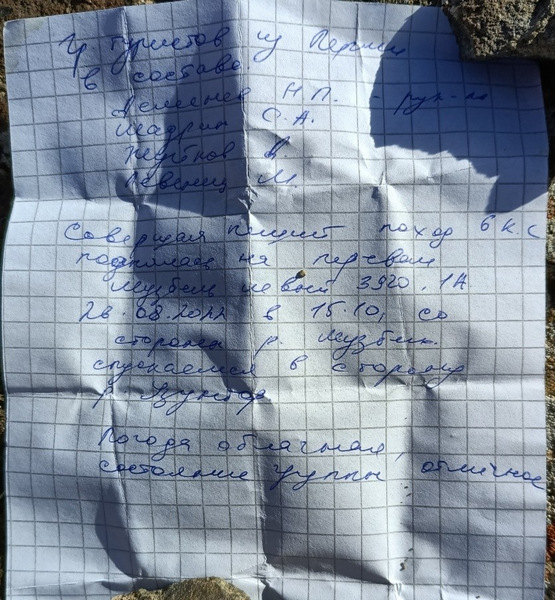 Гр туристов из Перми
в составе
Деменев Н.П. - рук-ль
Шадрин С.А.
Жуйков В.
Левенец М.
Совершая пеший поход 6 к.с
поднялась на перевал
Музбель левый 3920, 1А
28.08.2022 в 15.10, со
стороны р. Музбель.
спускаемся в сторону
р.
Погода облачная,
состояние группы отличное